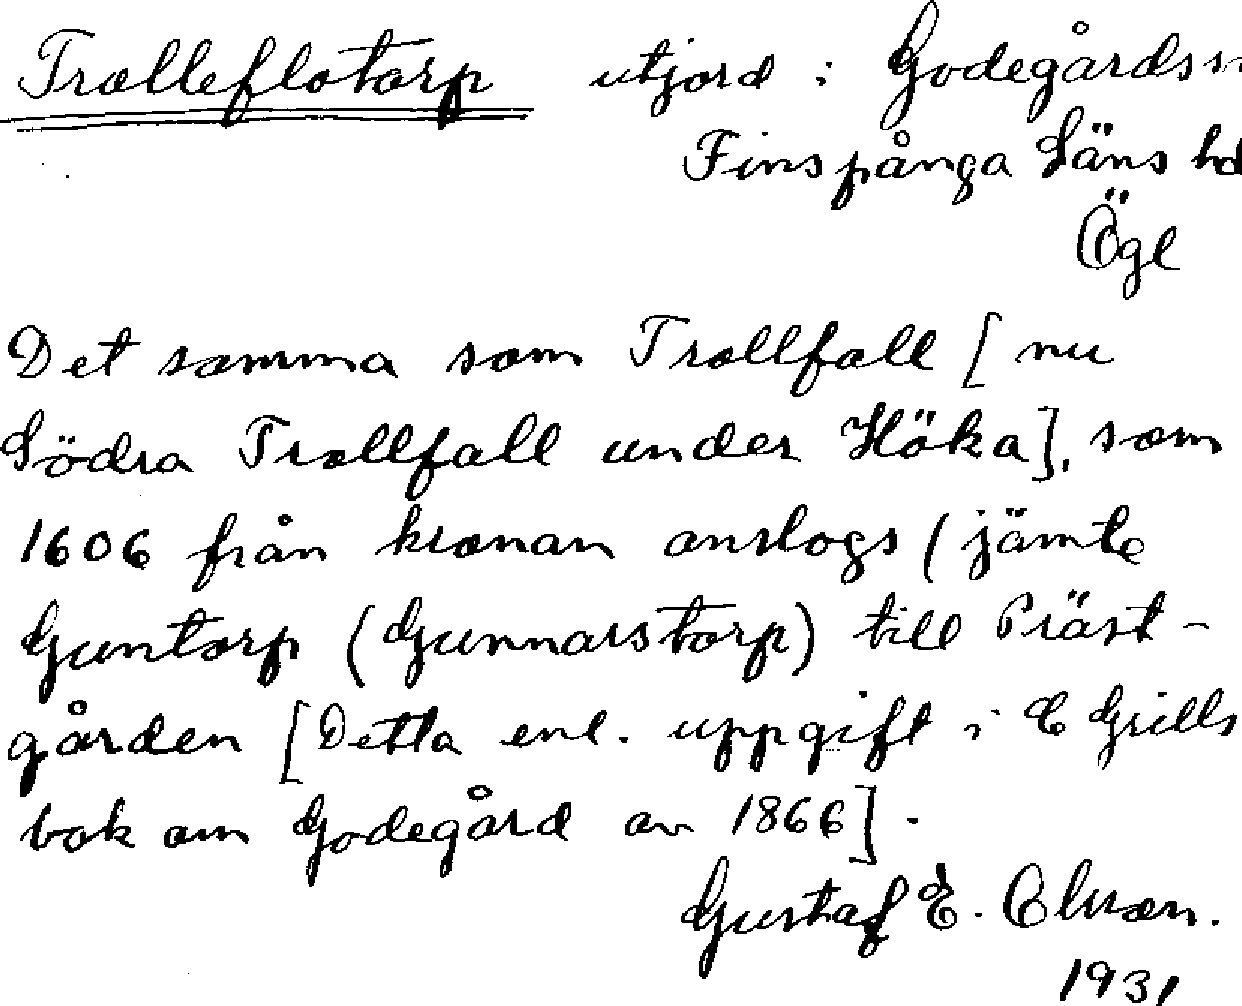 Trolleflotorp utjord i Godegårds sn
Finspånga Läns hd
Ögl
Det samma som Trollfall [nu
Södra Trollfall under Höka], som
1606 från kronan anslogs (jämte
Guntorp (Gunnarstorp) till Präst-
gården [Detta enl. uppgift i C Grills
bok om Godegård av 1866].
Gustaf E.
1931